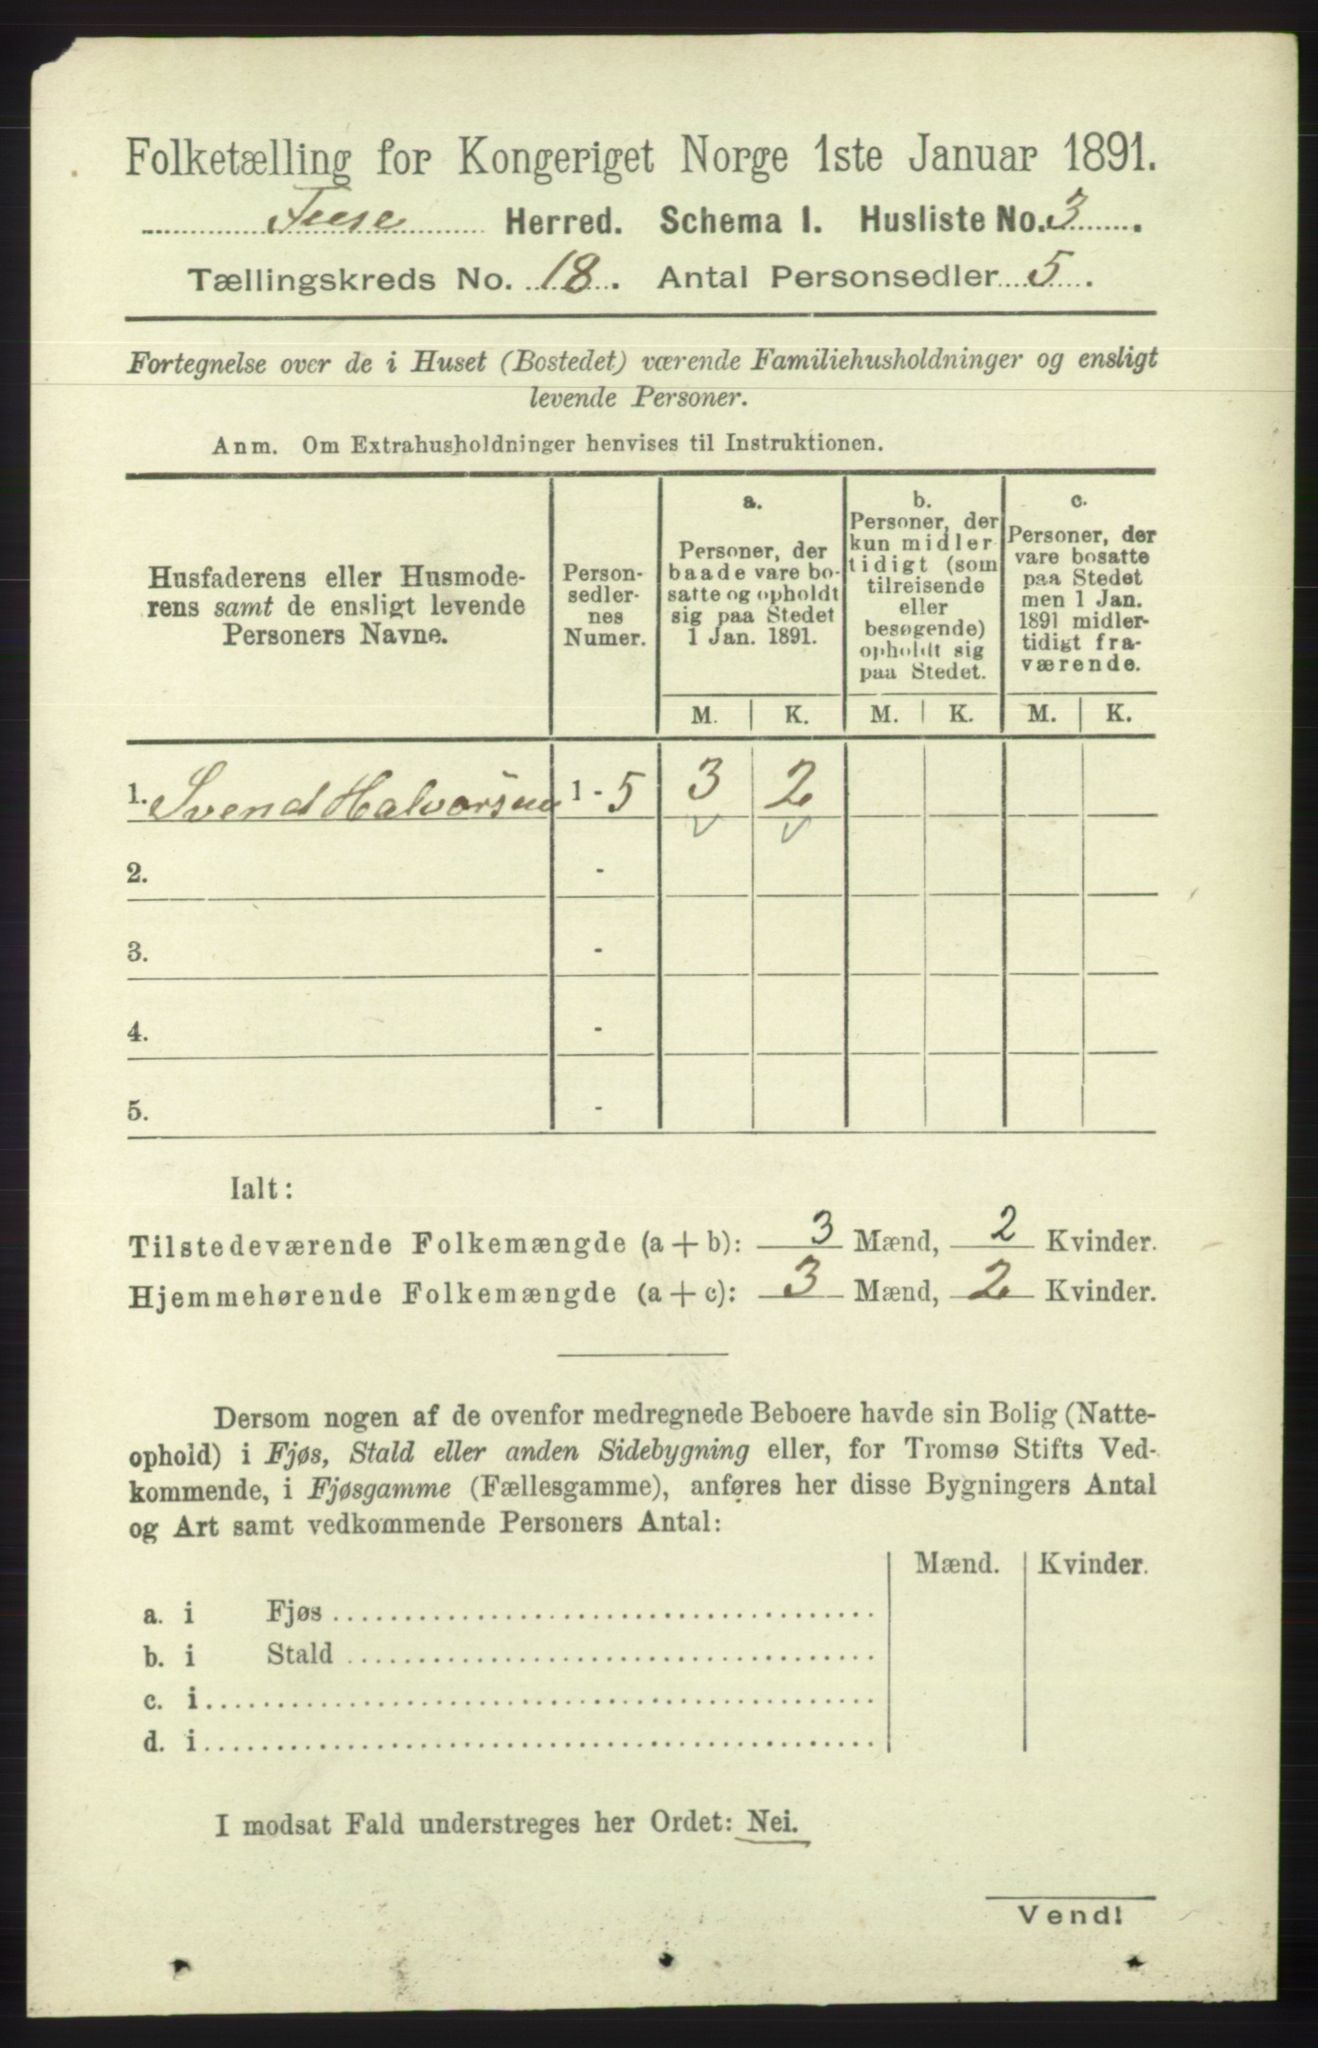 Folketælling for Kongeriget Norge 1ste Januar 1891.
Fuse Herred. Schema I. Husliste No. 3
Tællingskreds No. 18. Antal Personsedler 5.
Fortegnelse over de i Huset (Bostedet) værende Familiehusholdninger og ensligt
levende Personer.
Anm. Om Extrahusholdninger henvises til Instruktionen.
Husfaderens eller Husmode-
rens samt de ensligt levende
Personers Navne.
Person-
sedler-
nes
Numer.
a.
Personer, der
baade vare bo-
satte og opholdt
sig paa Stedet
1 Jan. 1891.
b.
Personer, der
kun midler
tidigt (som
tilreisende
eller
besøgende)
opholdt sig
paa Stedet.
c.
Personer, der
vare bosatte
paa Stedet
men 1 Jan.
1891 midler-
tidigt fra-
værende.
M. K. M. K. M. K.
1. Svend Halvorsen 1 - 5 3 2
v v
2. -
3. -
4. -
5. -
Ialt:
Tilstedeværende Folkemængde (a + b): 3 Mænd, 2 Kvinder.
Hjemmehørende Folkemængde (a + c): 3 Mænd, 2 Kvinder.
Dersom nogen af de ovenfor medregnede Beboere havde sin Bolig (Natte-
ophold) i Fjøs, Stald eller anden Sidebygning eller, for Tromsø Stifts Ved-
kommende, i Fjøsgamme (Fællesgamme), anføres her disse Bygningers Antal
og Art samt vedkommende Personers Antal:
Mænd. Kvinder.
a. i Fjøs
b. i Stald
c. i
d. i
I modsat Fald understreges her Ordet: Nei.
Vend!